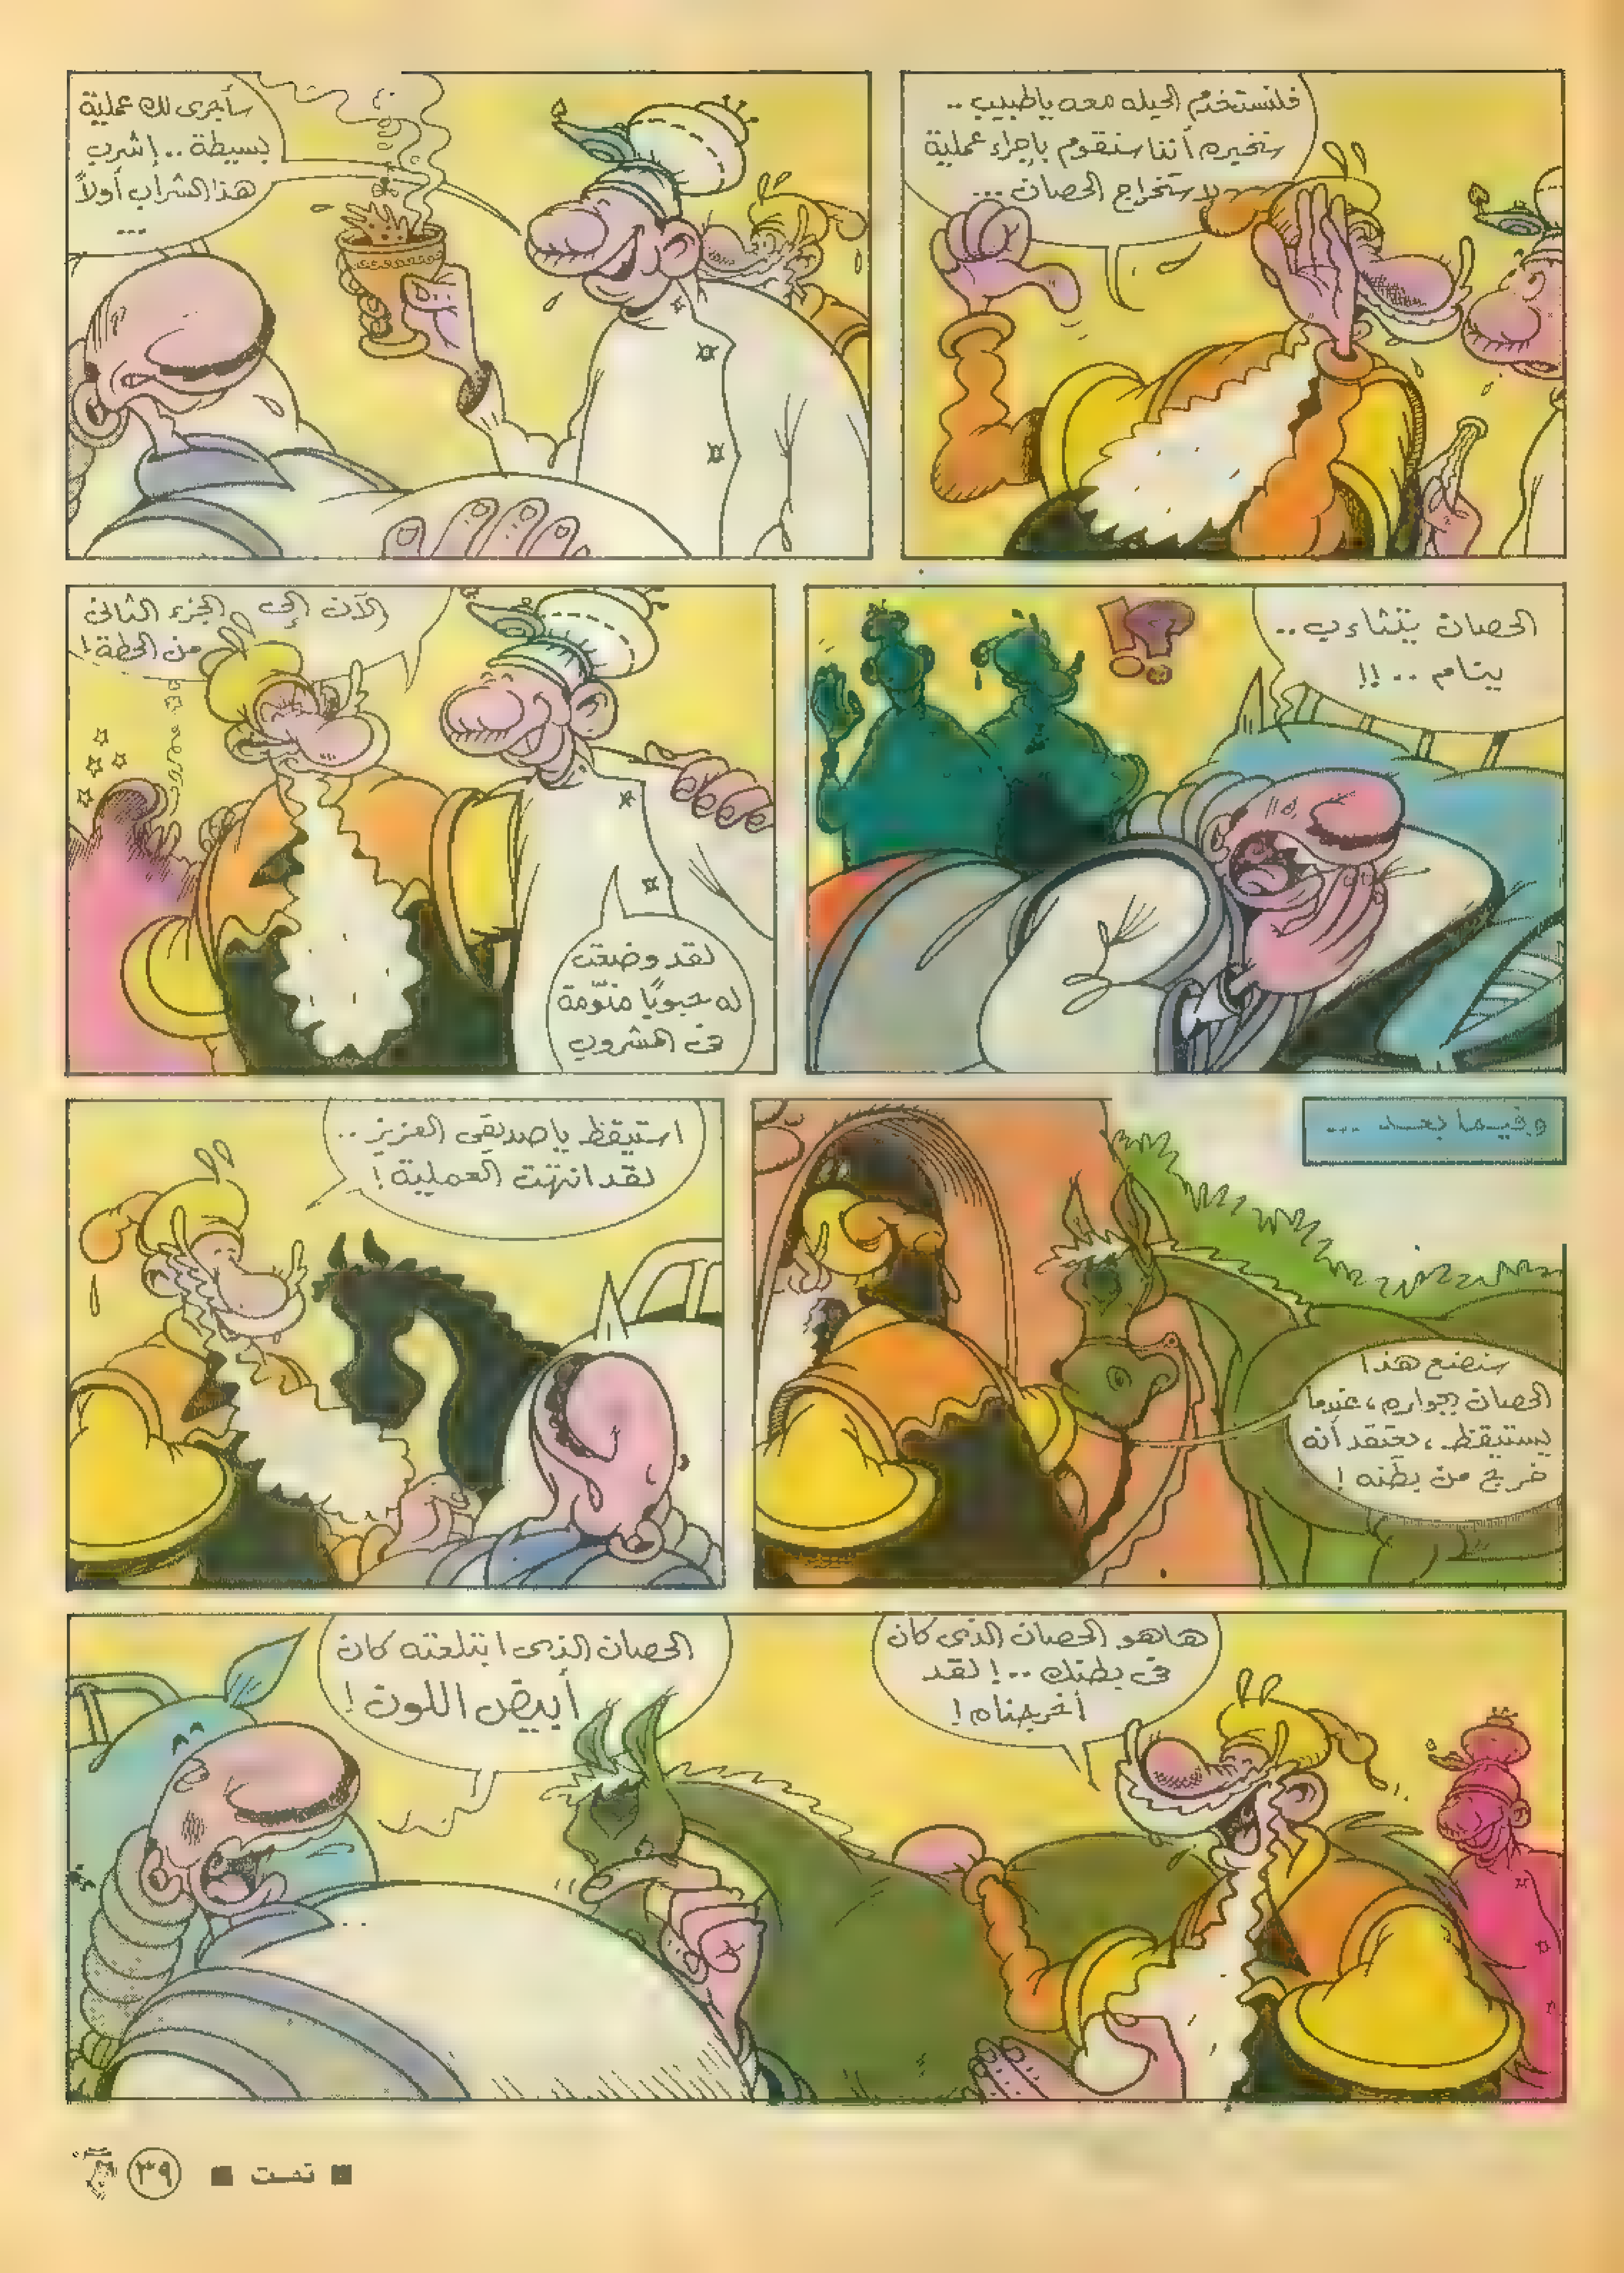 فلنستخدم الحيله معه ياطبيب ..
سنخبره أننا سنقوم بإجراء عملية
لاستخراج الحصان ...
سأجرى لك عملية
بسيطة .. إشرب
هذا الشراب أولاً
...
الحصان يتثاءب ..
ينام .. !!
!؟
الآن إلى الجزء الثانى
من الخطة !
لقد وضعت
له حبوبًا منوّمة
فى المشروب
وفيما بعد ...
سنضع هذا
الحصان بجواره ، عندما
يستيقظ ، يعتقد أنه
خرج من بطنه !
استيقظ ياصديقى العزيز ..
لقد انتهت العملية !
هاهو الحصان الذى كان
فى بطنك .. ! لقد
أخرجناه !
الحصان الذى ابتلعته كان
أبيض اللون !
■ تمت ■
٣٩